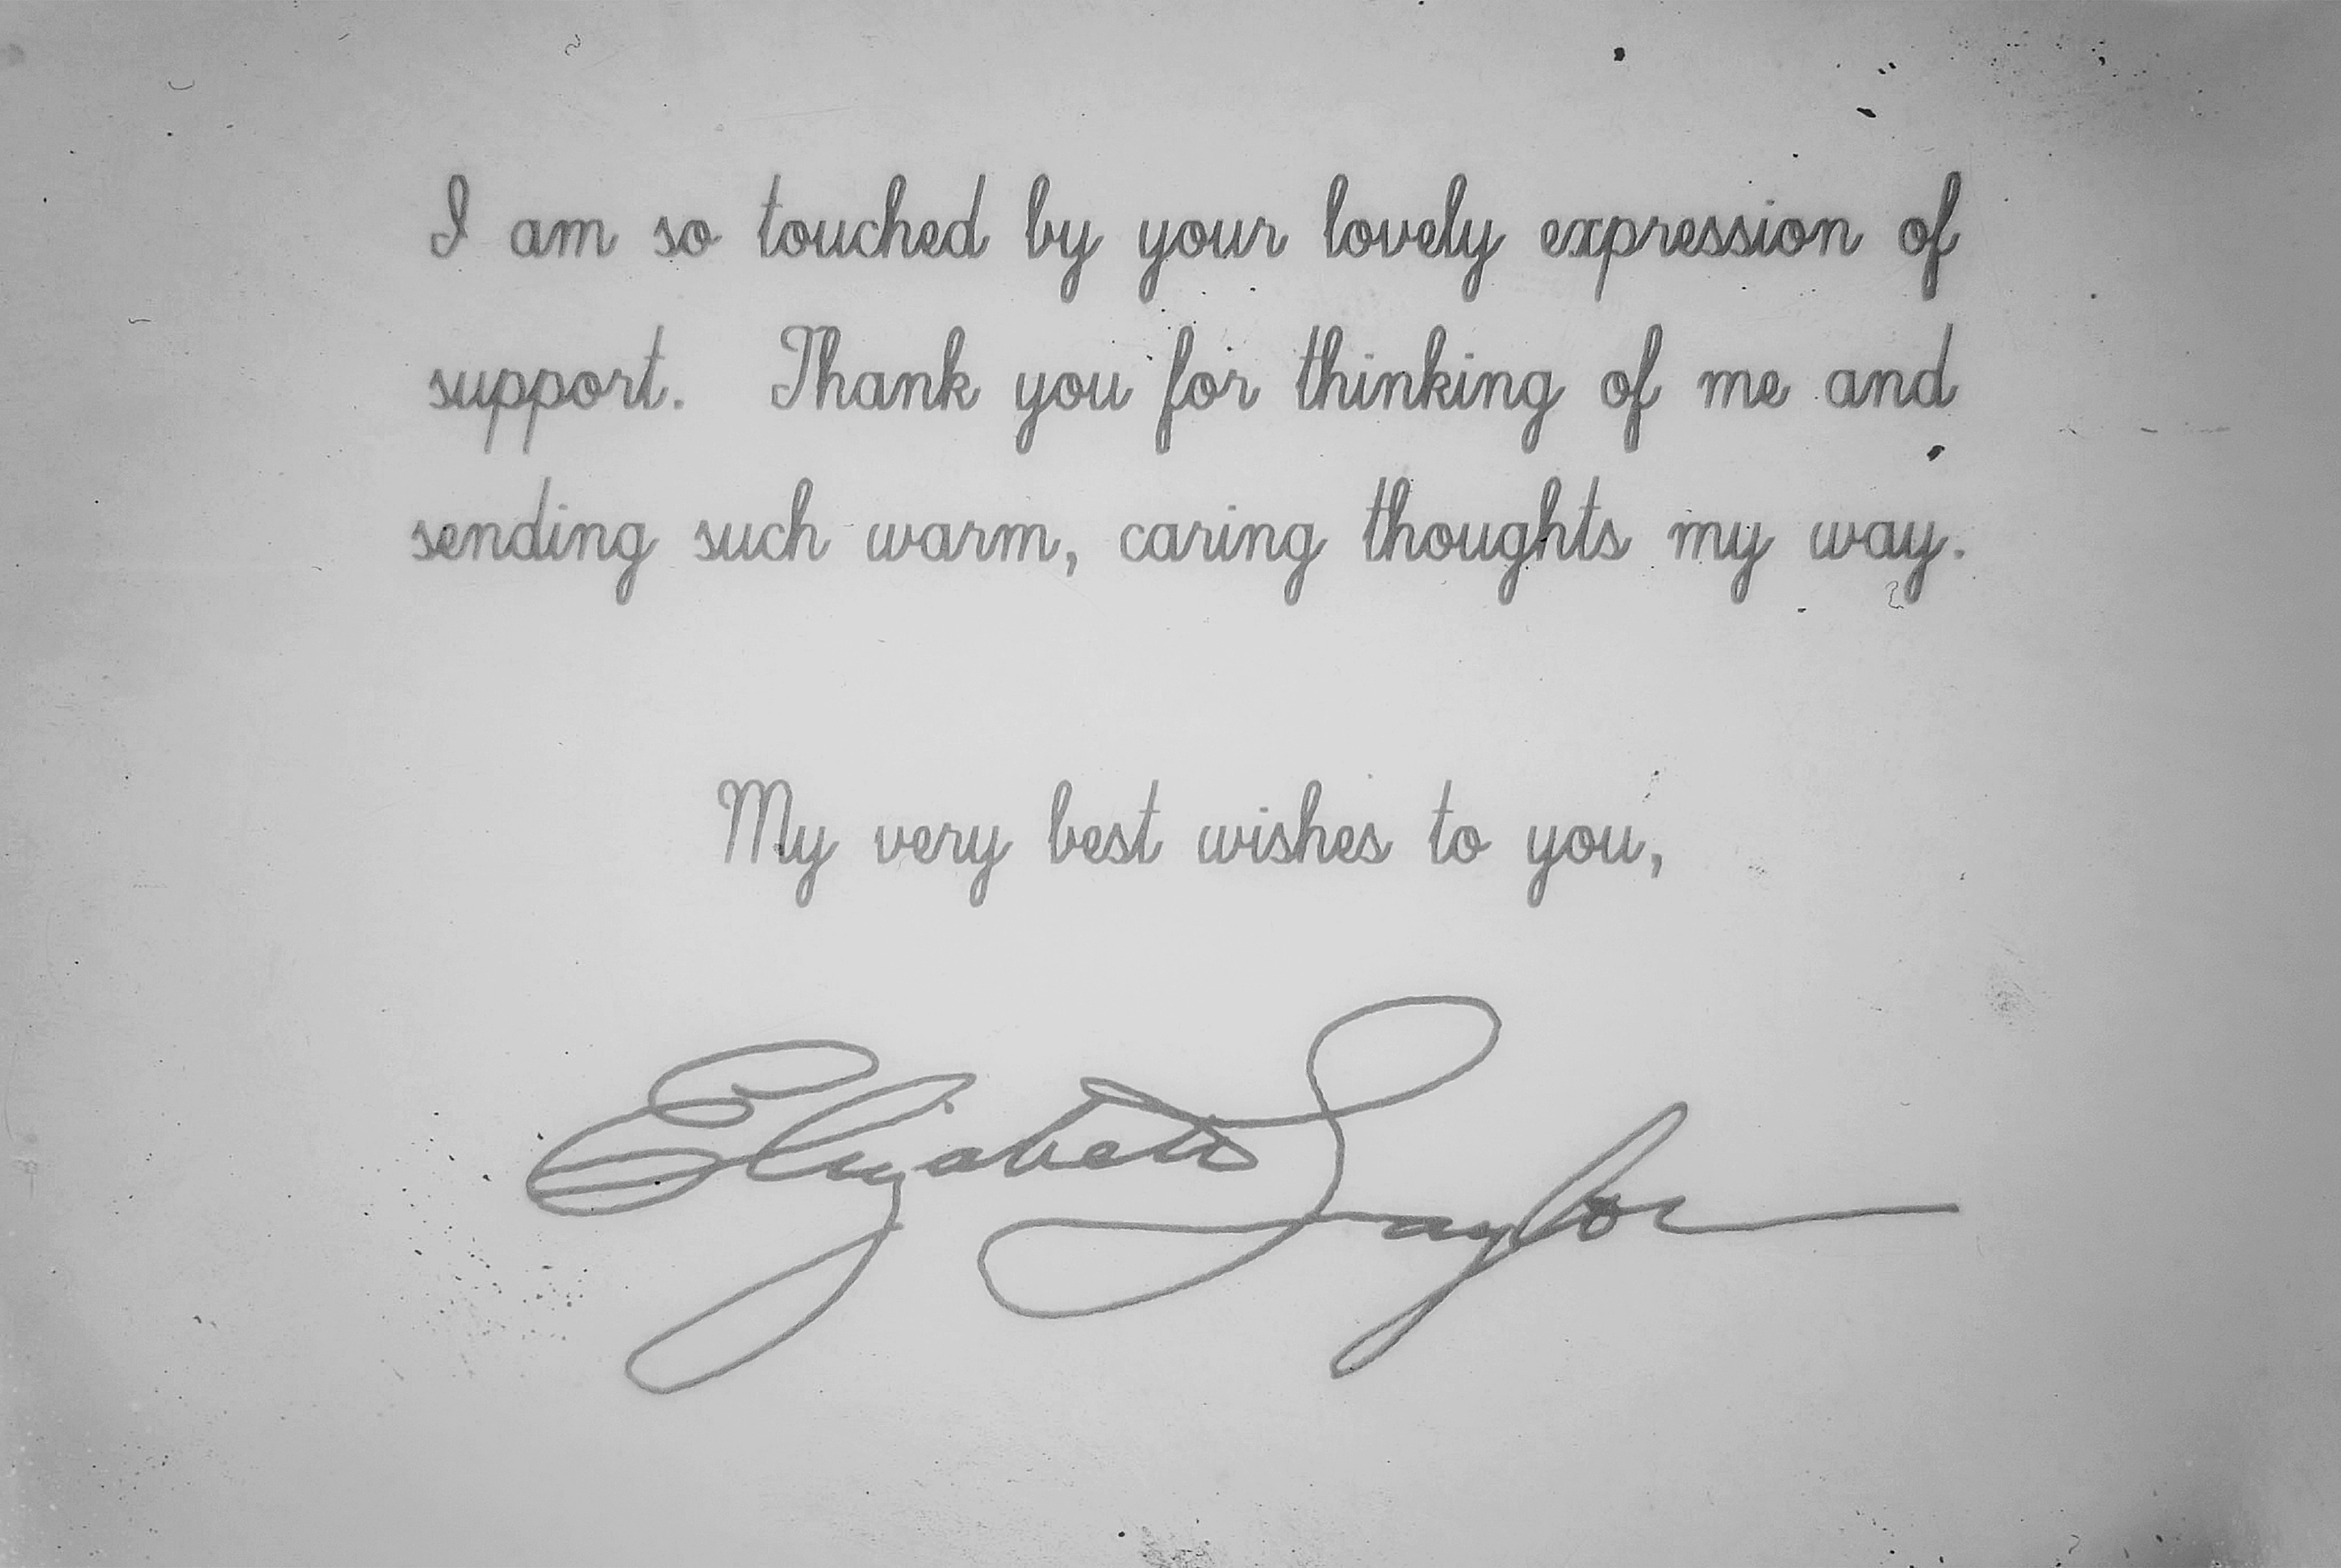 I am so touched by your lovely expression of
support. Thank you for thinking of me and
sending such warm, caring thoughts my way.
My very best wishes to you,
Elizabeth Taylor